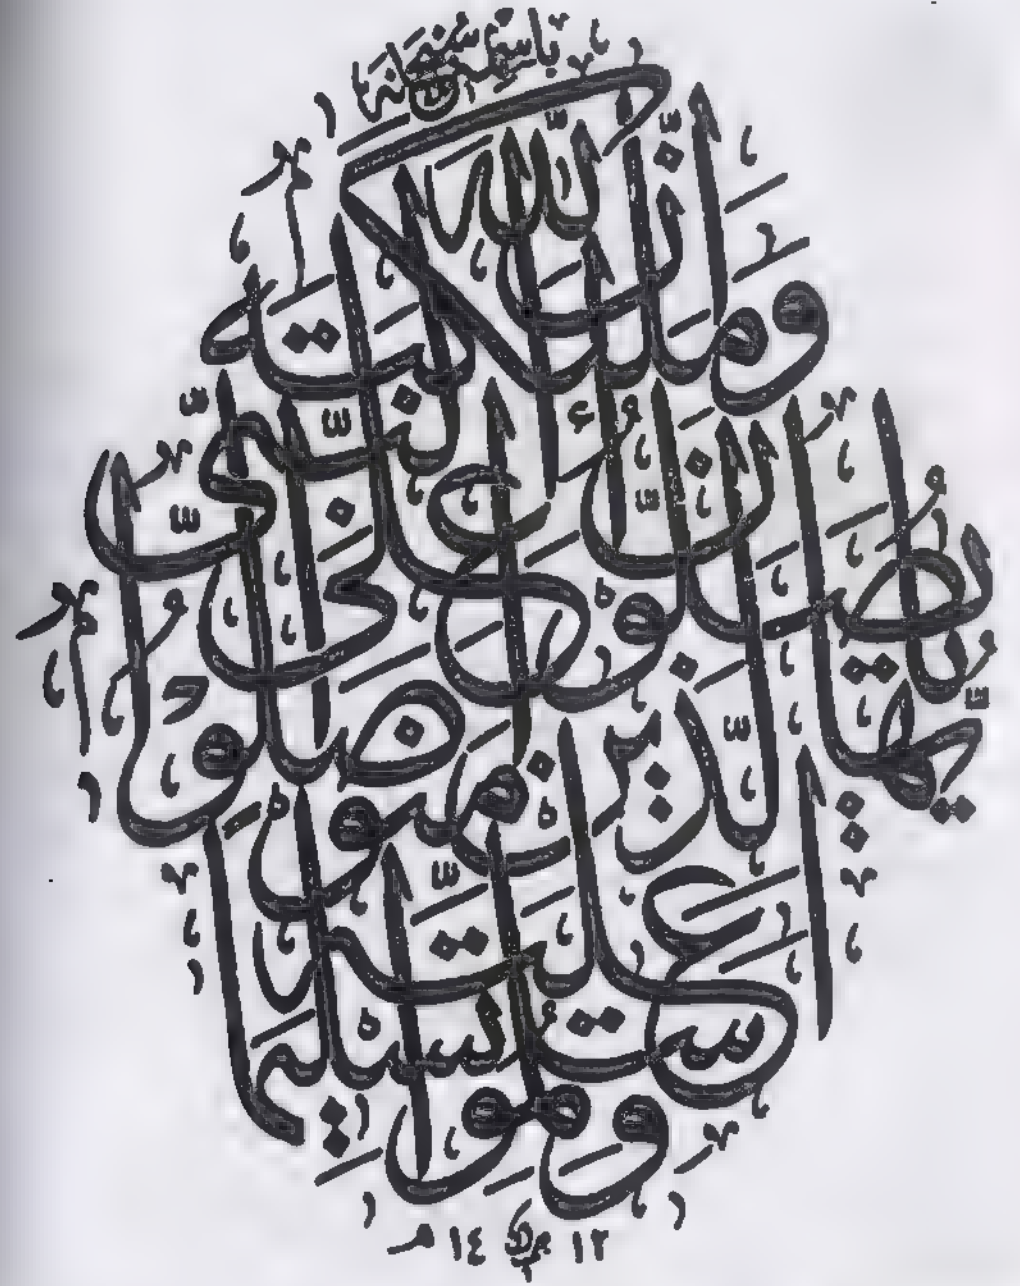 باسمه سبحانه
إِنَّ اللّٰهَ وَمَلَائِكَتَهُ
يُصَلُّونَ عَلَى النَّبِيِّ
يَا أَيُّهَا الَّذِينَ آمَنُوا صَلُّوا
عَلَيْهِ
وَسَلِّمُوا تَسْلِيمًا
١٢ ١٤ هـ